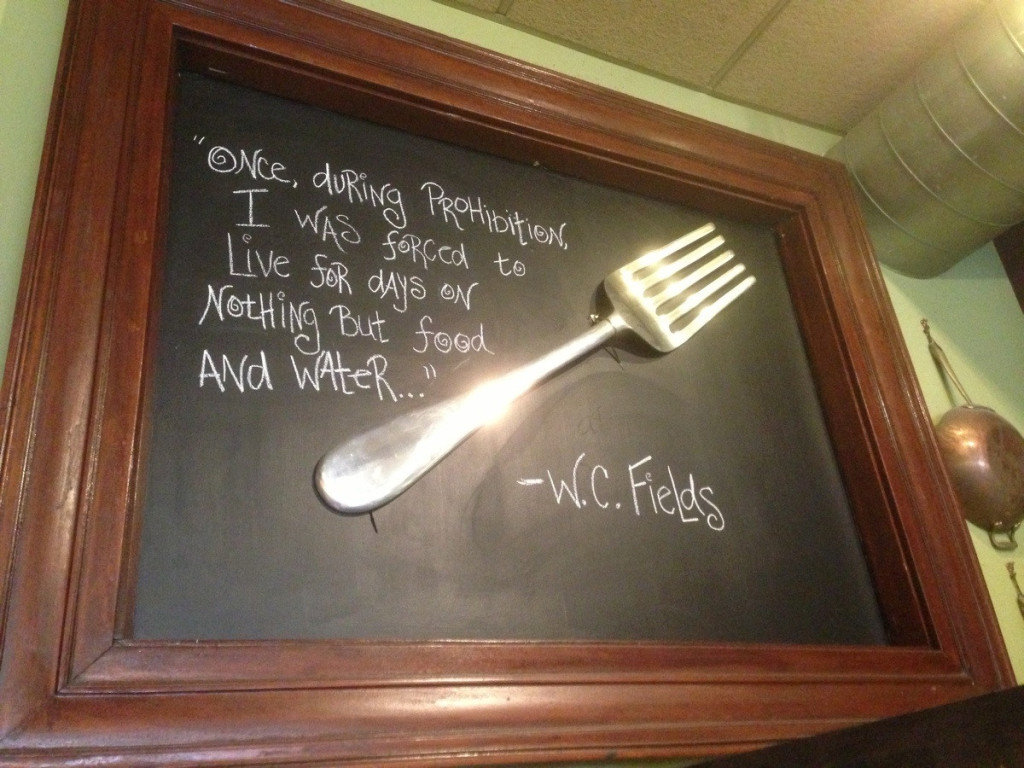 "ONce, duRiNg PROHibitioN,
I WAS foRCed to
Live foR dAyS oN
NotHiNg But food
ANd WAteR..."
-W.C. Fields